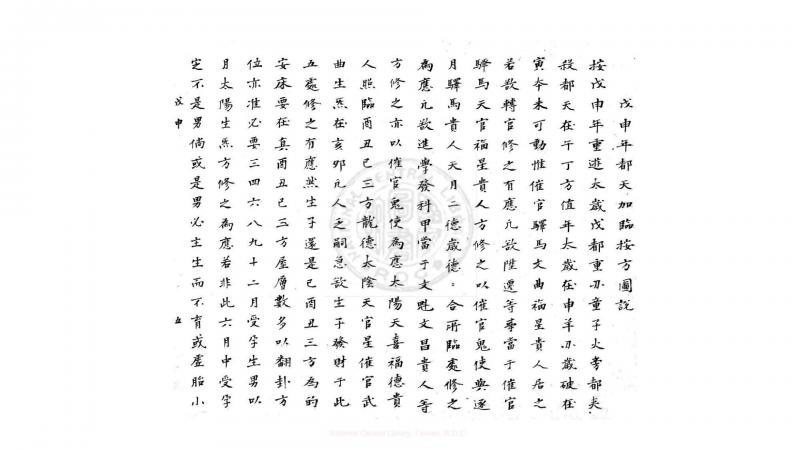 戊申年都天加臨按方圖說
按戊申年重遊太歲戊都重亦童子火旁都夾
殺都天在午丁方值年太歲在申羊刃歲破在
寅本未可動惟催官驛馬文曲福星貴人居之
若欲轉官修之有應凡欲陞遷等事當于催官
驛馬天官福星貴人方修之以催官鬼使與逐
月驛馬貴人天月二德歲德=合所臨處修之
為應凡欲進學發科甲當于文魁文昌貴人等
方修之亦以催官鬼使為應太陽天喜福德貴
人照臨酉丑巳三方龍德太陰天官星催官武
曲生炁在亥卯凡人乏嗣急欲生子發財于此
五處修之有應然生子還是巳酉丑三方為的
安床要在真酉丑巳三方屋層數多以翻卦方
位亦准必要三四六八九十二月受孕生男以
月太陽生炁方修之為應若非此六月中受孕
定不是男倘或是男必主生而不育或虛胎小
戊申
五
National Central Library, Taiwan, R.O.C